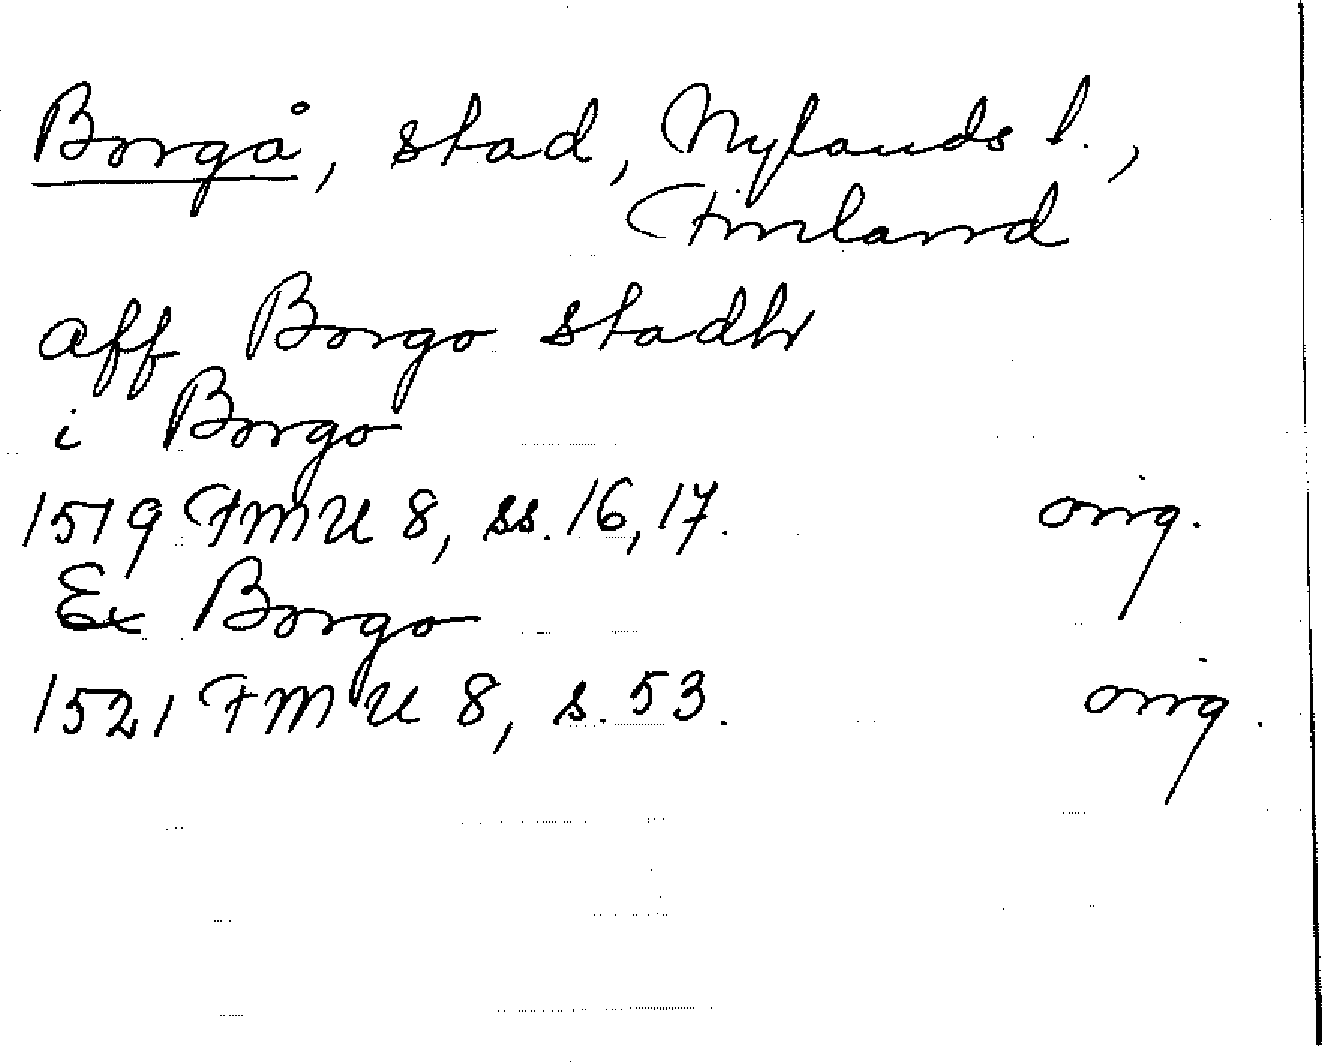 Borgå, stad, Nylands l.,
Finland
aff Borgo stadh
i Borgo
1519 FMU 8, ss. 16, 17. orig.
Ex Borgo
1521 FMU 8, s. 53. orig.